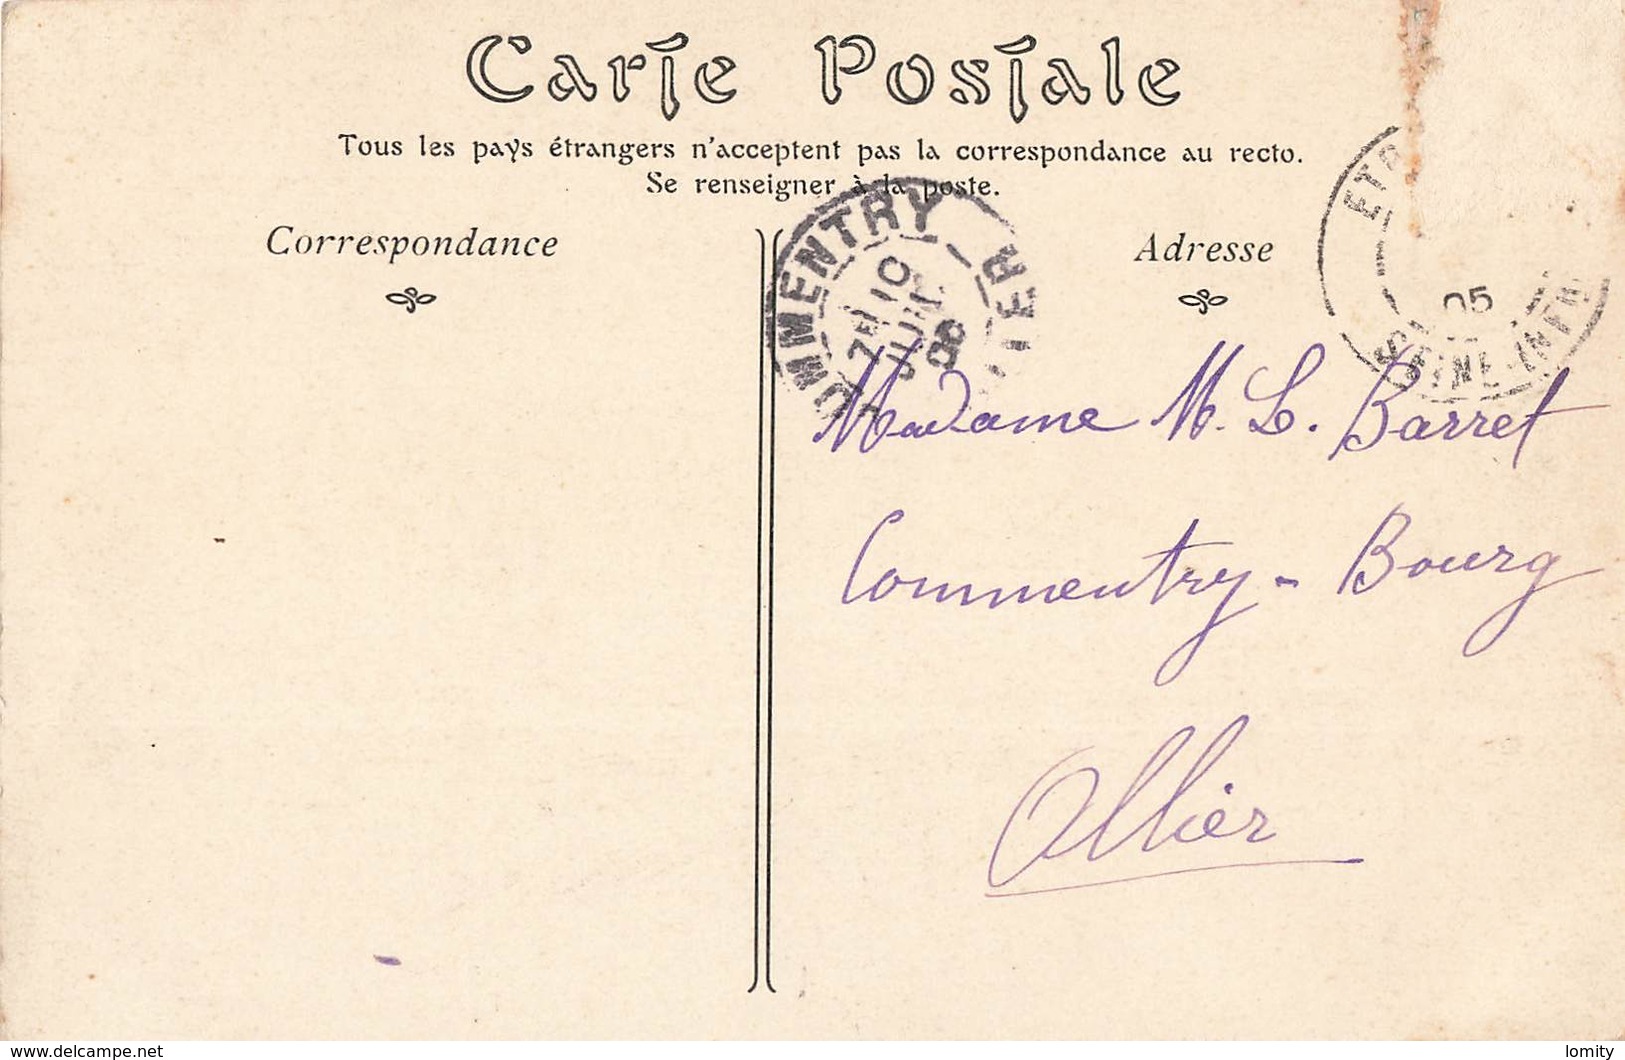 Carte Postale
Tous les pays étrangers n'acceptent pas la correspondance au recto.
Se renseigner à la poste.
Correspondance
Adresse
OMMENTRY
7E 10
JUIL
LIER
ETR
05
SEINE-INF
Madame M. L. Barret
Commentry - Bourg
Allier
www.delcampe.net
lomity